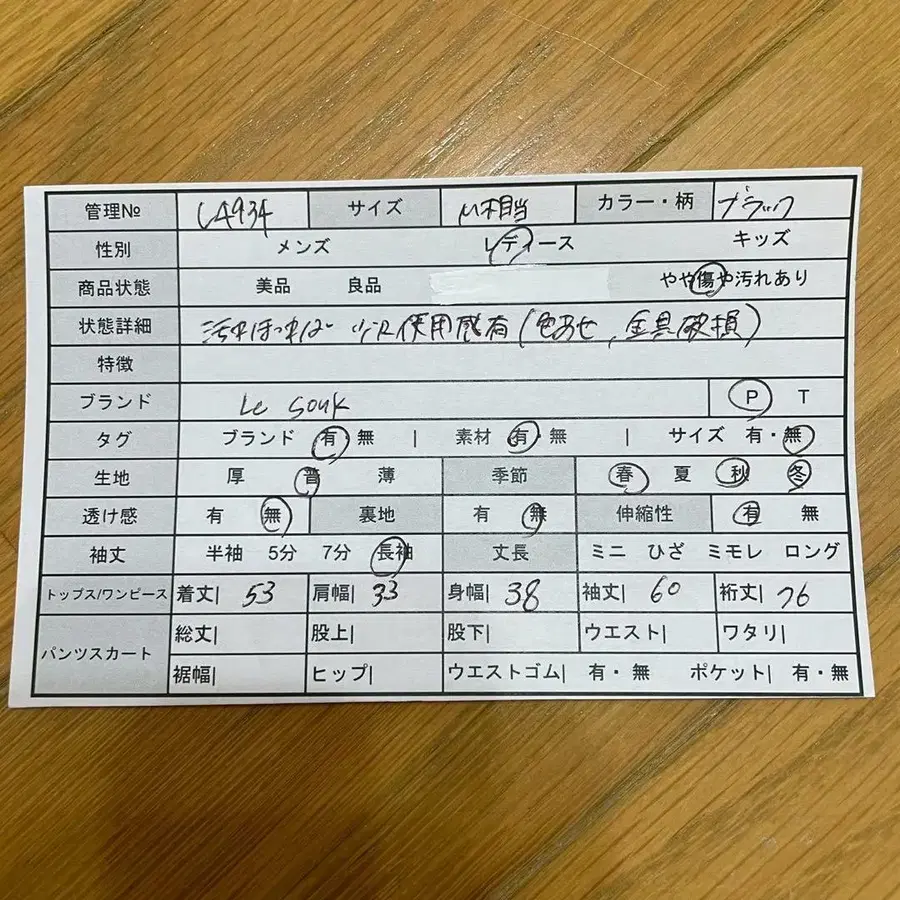 管理№ L4934 サイズ M相当 カラー・柄 ブラック
性別 メンズ レディース キッズ
商品状態 美品 良品 やや傷や汚れあり
状態詳細 少々使用感有(色あせ,金具破損)
特徴
ブランド Le souk P T
タグ ブランド 有・無 | 素材 有・無 | サイズ 有・無
生地 厚 普 薄 季節 春 夏 秋 冬
透け感 有 無 裏地 有 無 伸縮性 有 無
袖丈 半袖 5分 7分 長袖 丈長 ミニ ひざ ミモレ ロング
トップス/ワンピース 着丈| 53 肩幅| 33 身幅| 38 袖丈| 60 裄丈| 76
パンツスカート 総丈| 股上| 股下| ウエスト| ワタリ|
裾幅| ヒップ| ウエストゴム| 有・無 ポケット| 有・無